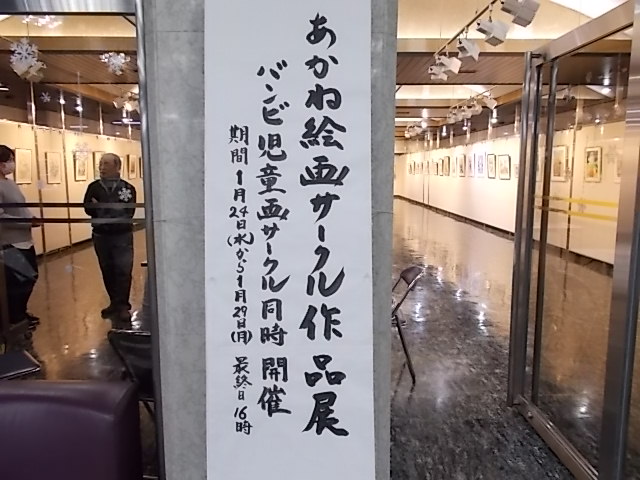 あかね絵画サークル作品展
バンビ児童画サークル同時開催
期間1月24日(水)から1月29日(月) 最終日16時